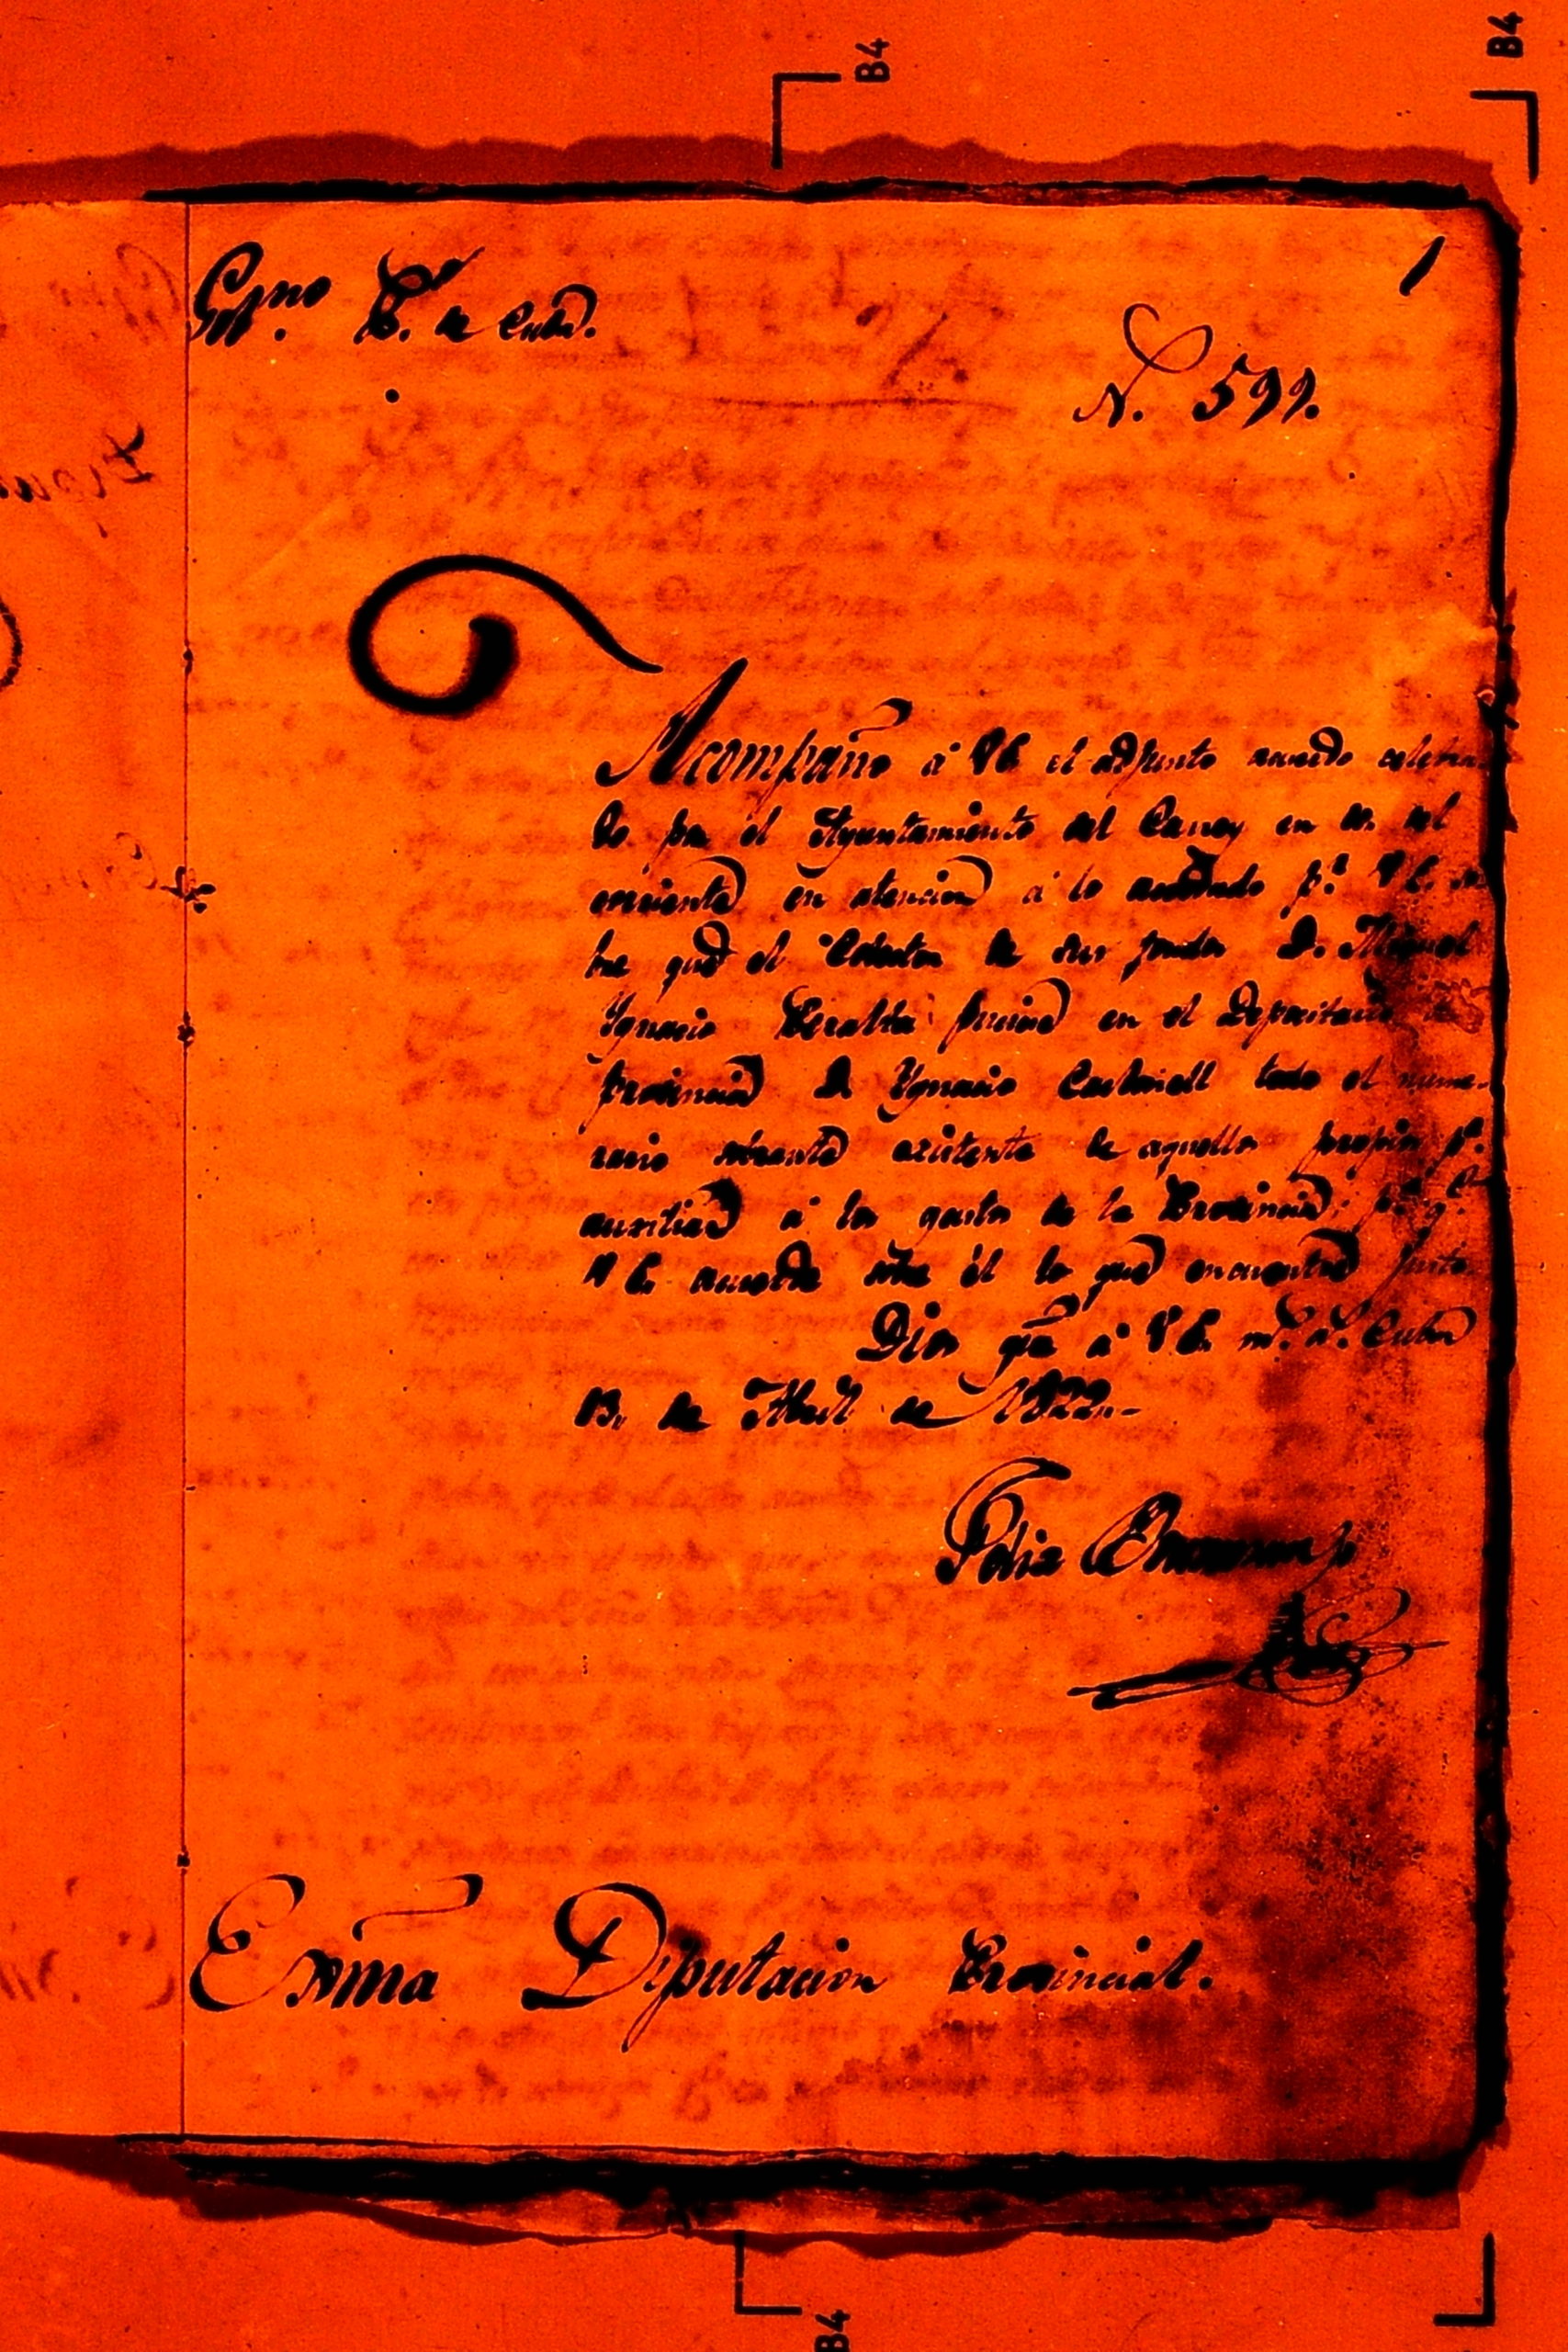 B4
B4
1
Gno P. de Cuba.
N. 599.
Acompaño á VE el adjunto acuerdo celebra-
do por el Ayuntamiento del Caney en 10. del
corriente en atencion á lo acordado pr. VE. so-
bre que el Colector de sus fondos D. Miguel
Ygnacio Peralta ponga en el Depositario
Provincial D. Ygnacio Carbonell todo el nume-
rario sobrante existente de aquellos propios pa.
auxiliar á los gastos de la Provincia; pa. qe.
VE. acuerde sobre él lo que encuentre justo.
Dios gue á VE. ms. as. Cuba
13. de Abril de 1822.-
Felix
Exma Diputacion Provincial.
B4